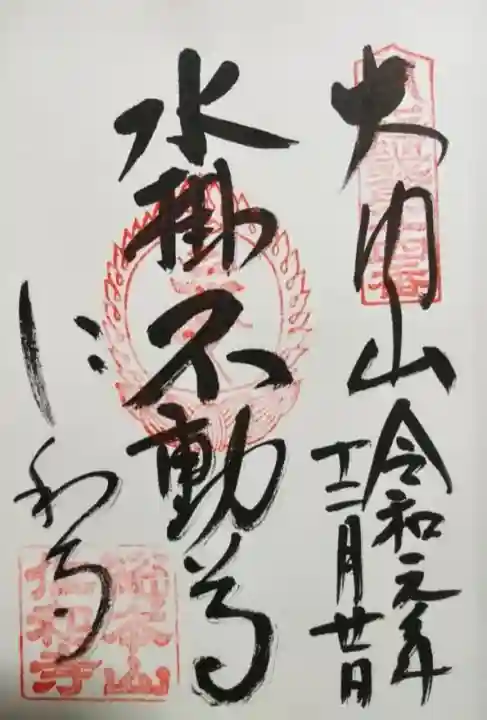 大内山
令和元年
十二月廿日
水掛不動尊
仁和寺
総本山
仁和寺